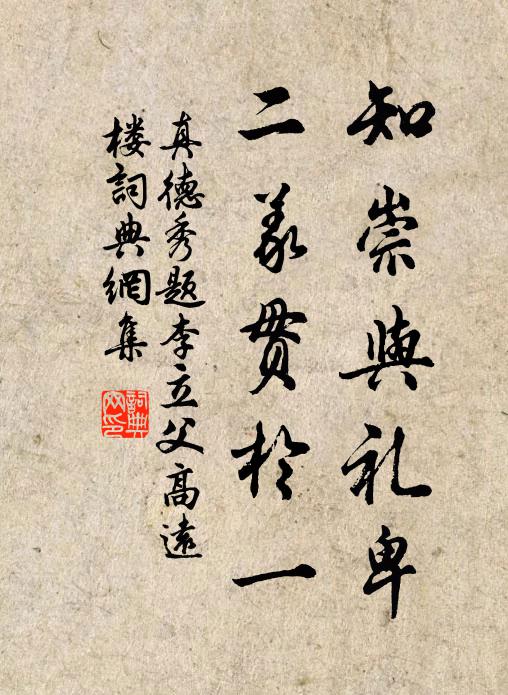 知崇與礼卑
二義貫於一
真德秀题李立父高遠
楼詞典網集
詞典
网印